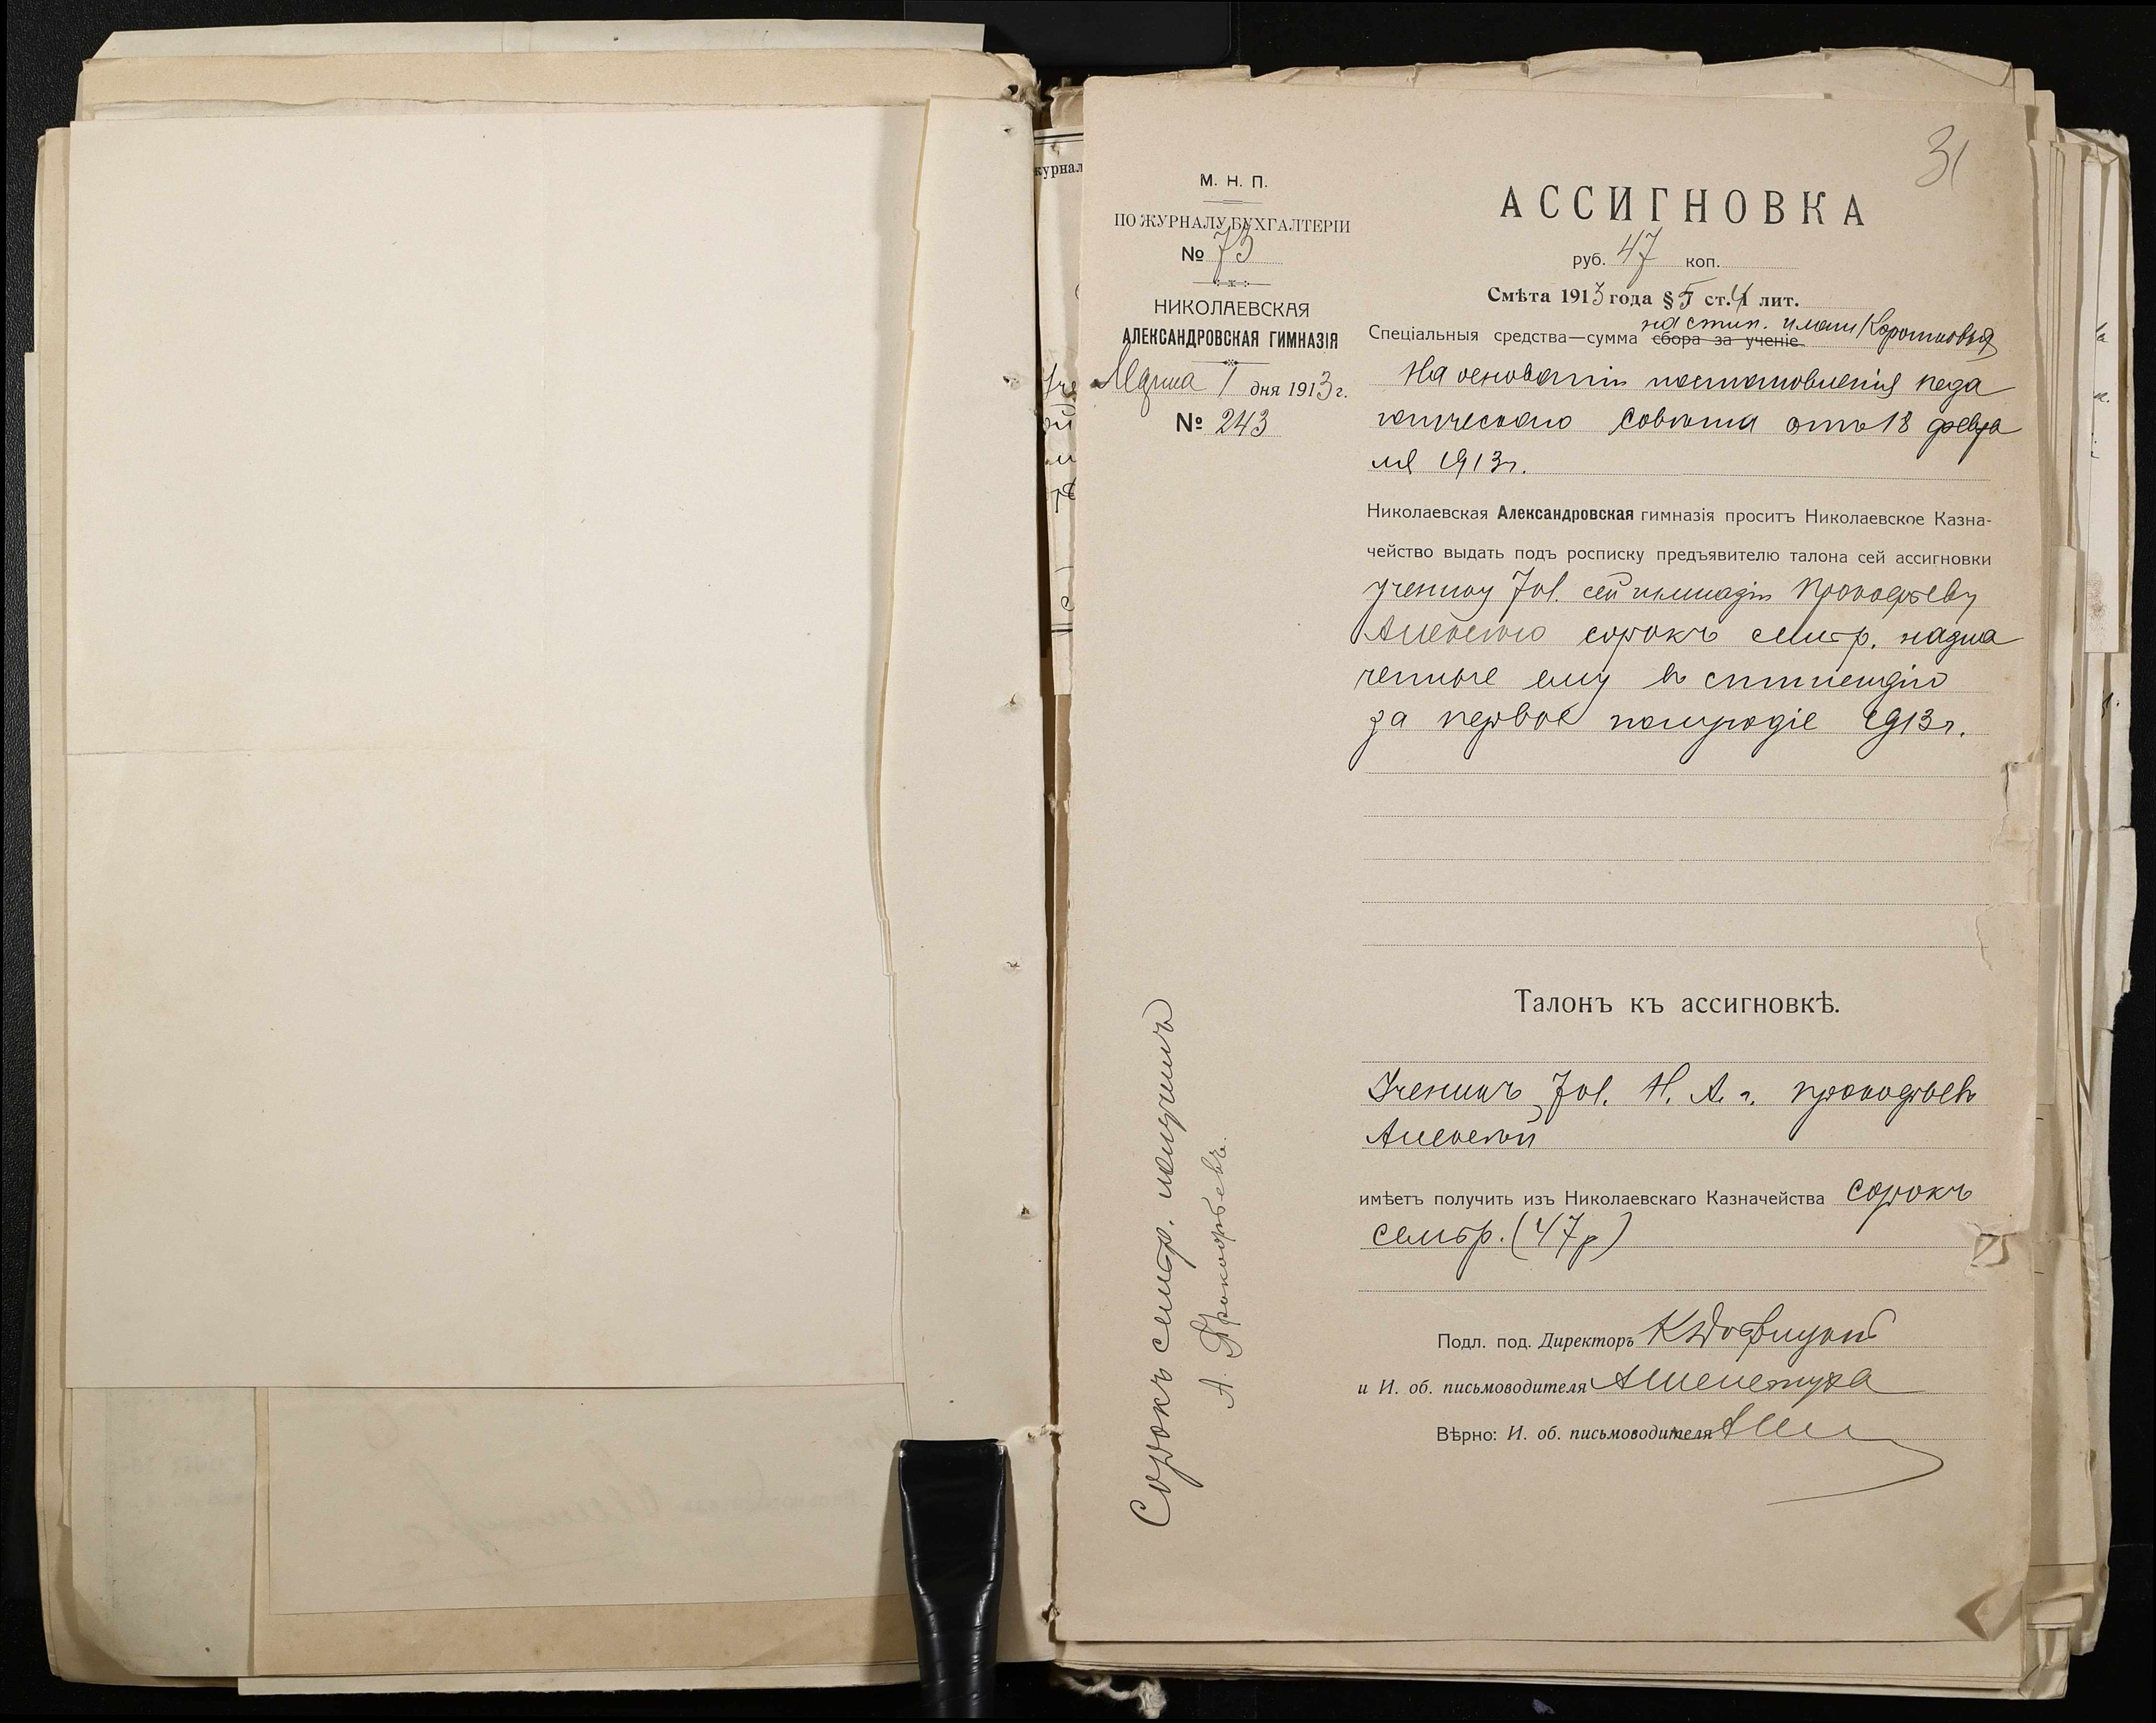 31
М. Н. П.
ПО ЖУРНАЛУ БУХГАЛТЕРІИ
№ 73
НИКОЛАЕВСКАЯ
АЛЕКСАНДРОВСКАЯ ГИМНАЗІЯ
Марта 1 дня 1913 г.
№ 243
АССИГНОВКА
руб. 47 коп.
Смѣта 1913 года § 5 ст. 4 лит.
на стип. имени Коротковыя
Спеціальныя средства—сумма сбора за ученіе
На основаніи постановленія педа
гогическаго Совѣта отъ 18 февра
ля 1913 г.
Николаевская Александровская гимназія проситъ Николаевское Казна-
чейство выдать подъ росписку предъявителю талона сей ассигновки
ученику 7 кл. сей гимназіи Прокофьеву
Алексѣю сорокъ семь р. назна
ченные ему въ стипендію
за первое полугодіе 1913 г.
Талонъ къ ассигновкѣ.
Ученикъ 7 кл. Н. А. г. Прокофьевъ
Алексѣй
имѣетъ получить изъ Николаевскаго Казначейства сорокъ
семь р. (47 р)
Подл. под. Директоръ
и И. об. письмоводителя Ашенетура
Вѣрно: И. об. письмоводителя
Сорокъ семь р. получилъ
А. Прокофьевъ.
журнал